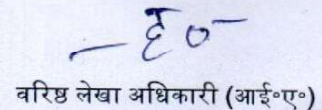 — ह० —
वरिष्ठ लेखा अधिकारी (आई०ए०)